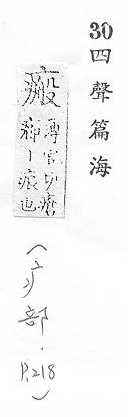 30 四聲篇海
薄官切瘡
丨痕也
(疒部. P.218)